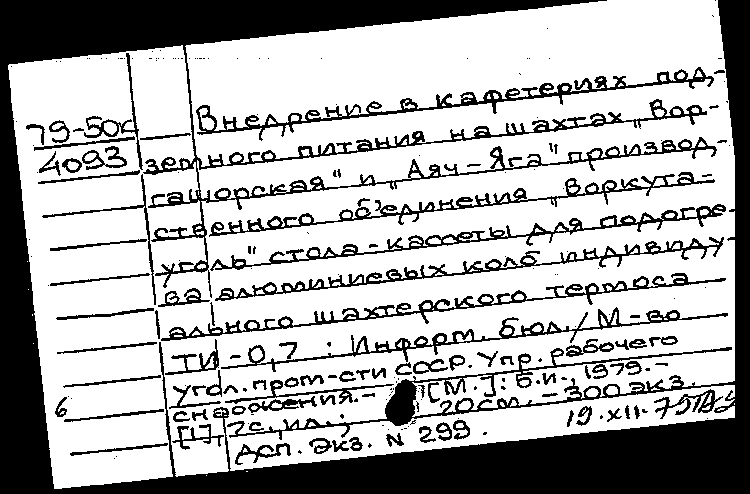 79-50к Внедрение в кафетериях под-
4093 земного питания на шахтах „Вор-
гашорская" и „Аяч-Яга" производ-
ственного объединения „Воркута=
уголь" стола-кассеты для подогре-
ва алюминиевых колб индивиду-
ального шахтерского термоса
ТИ-0,7 : Информ. бюл./М-во
угол. пром-сти СССР. Упр. рабочего
снабжения.- [М.]: Б.и., 1979.-
6 [1], 2с., ил.; 20см. - 300 экз.
ДСП. Экз. N 299. 19.XII.79